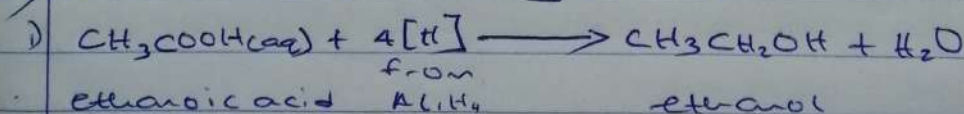 1) CH₃COOH(aq) + 4[H] ⟶ CH₃CH₂OH + H₂O
from
ethanoic acid AlLiH₄ ethanol